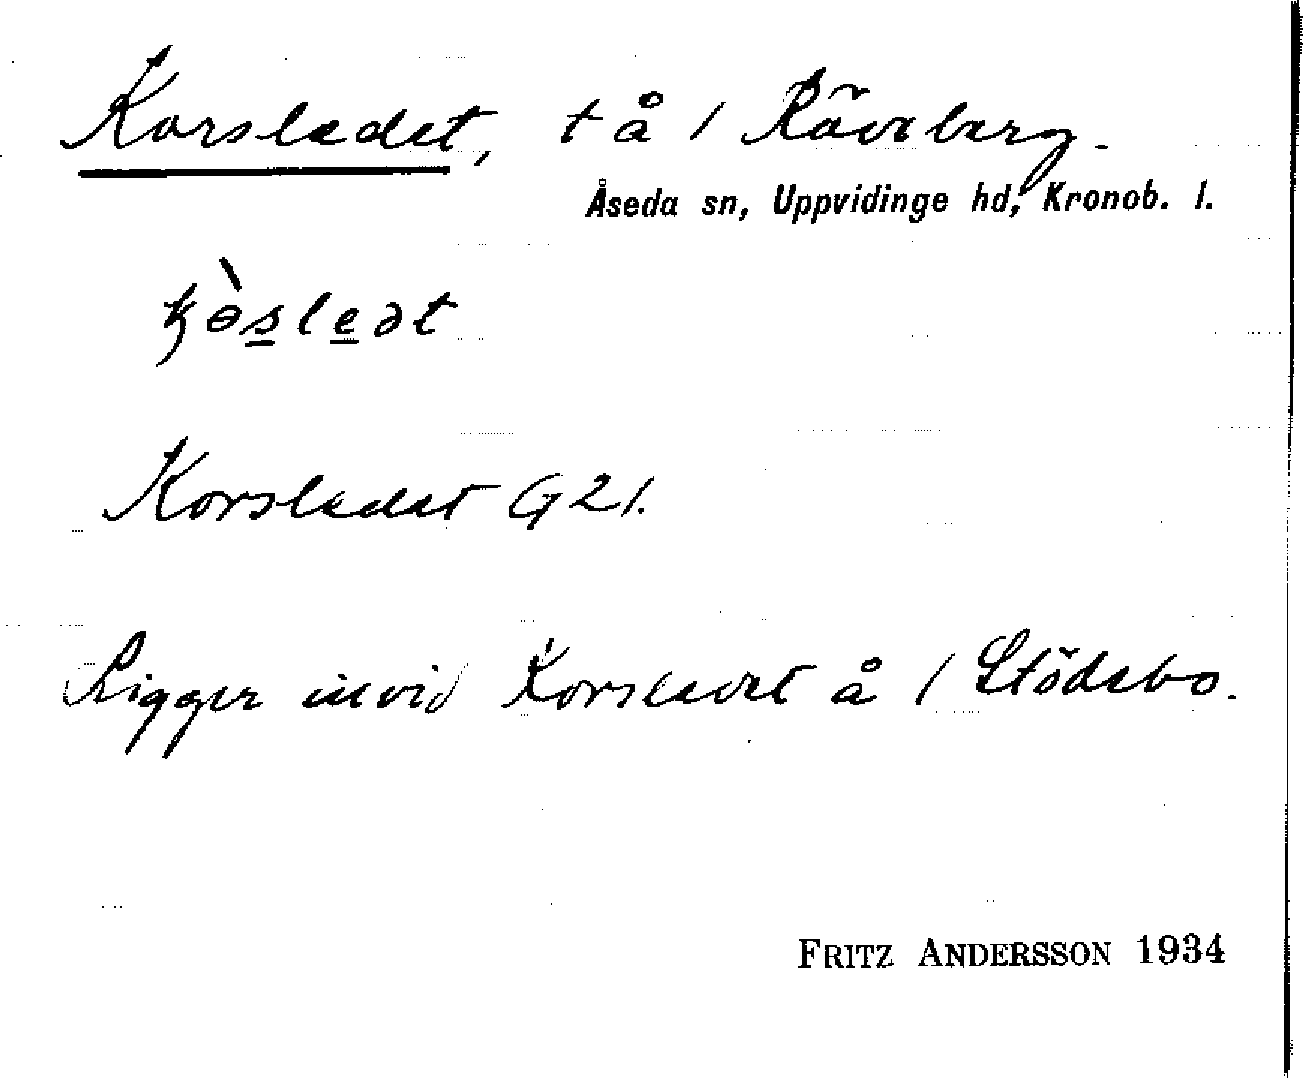 Korsledet, t å 1 Räveberg.
Åseda sn, Uppvidinge hd, Kronob. l.
Korsledet G21.
Ligger invid Korsledet å 1 Stödsbo.
FRITZ ANDERSSON 1934